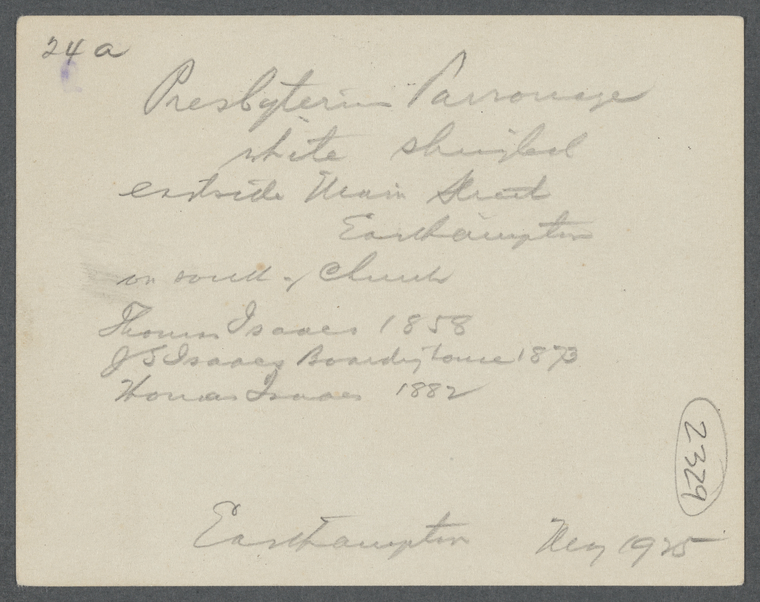 24a
Presbyterian Parsonage
white shingled
eastside Main Street
Easthampton
on south of Church
Thomas Isaacs 1858
J S Isaacs Boarding house 1873
Thomas Isaacs 1882
2329
Easthampton May 1925